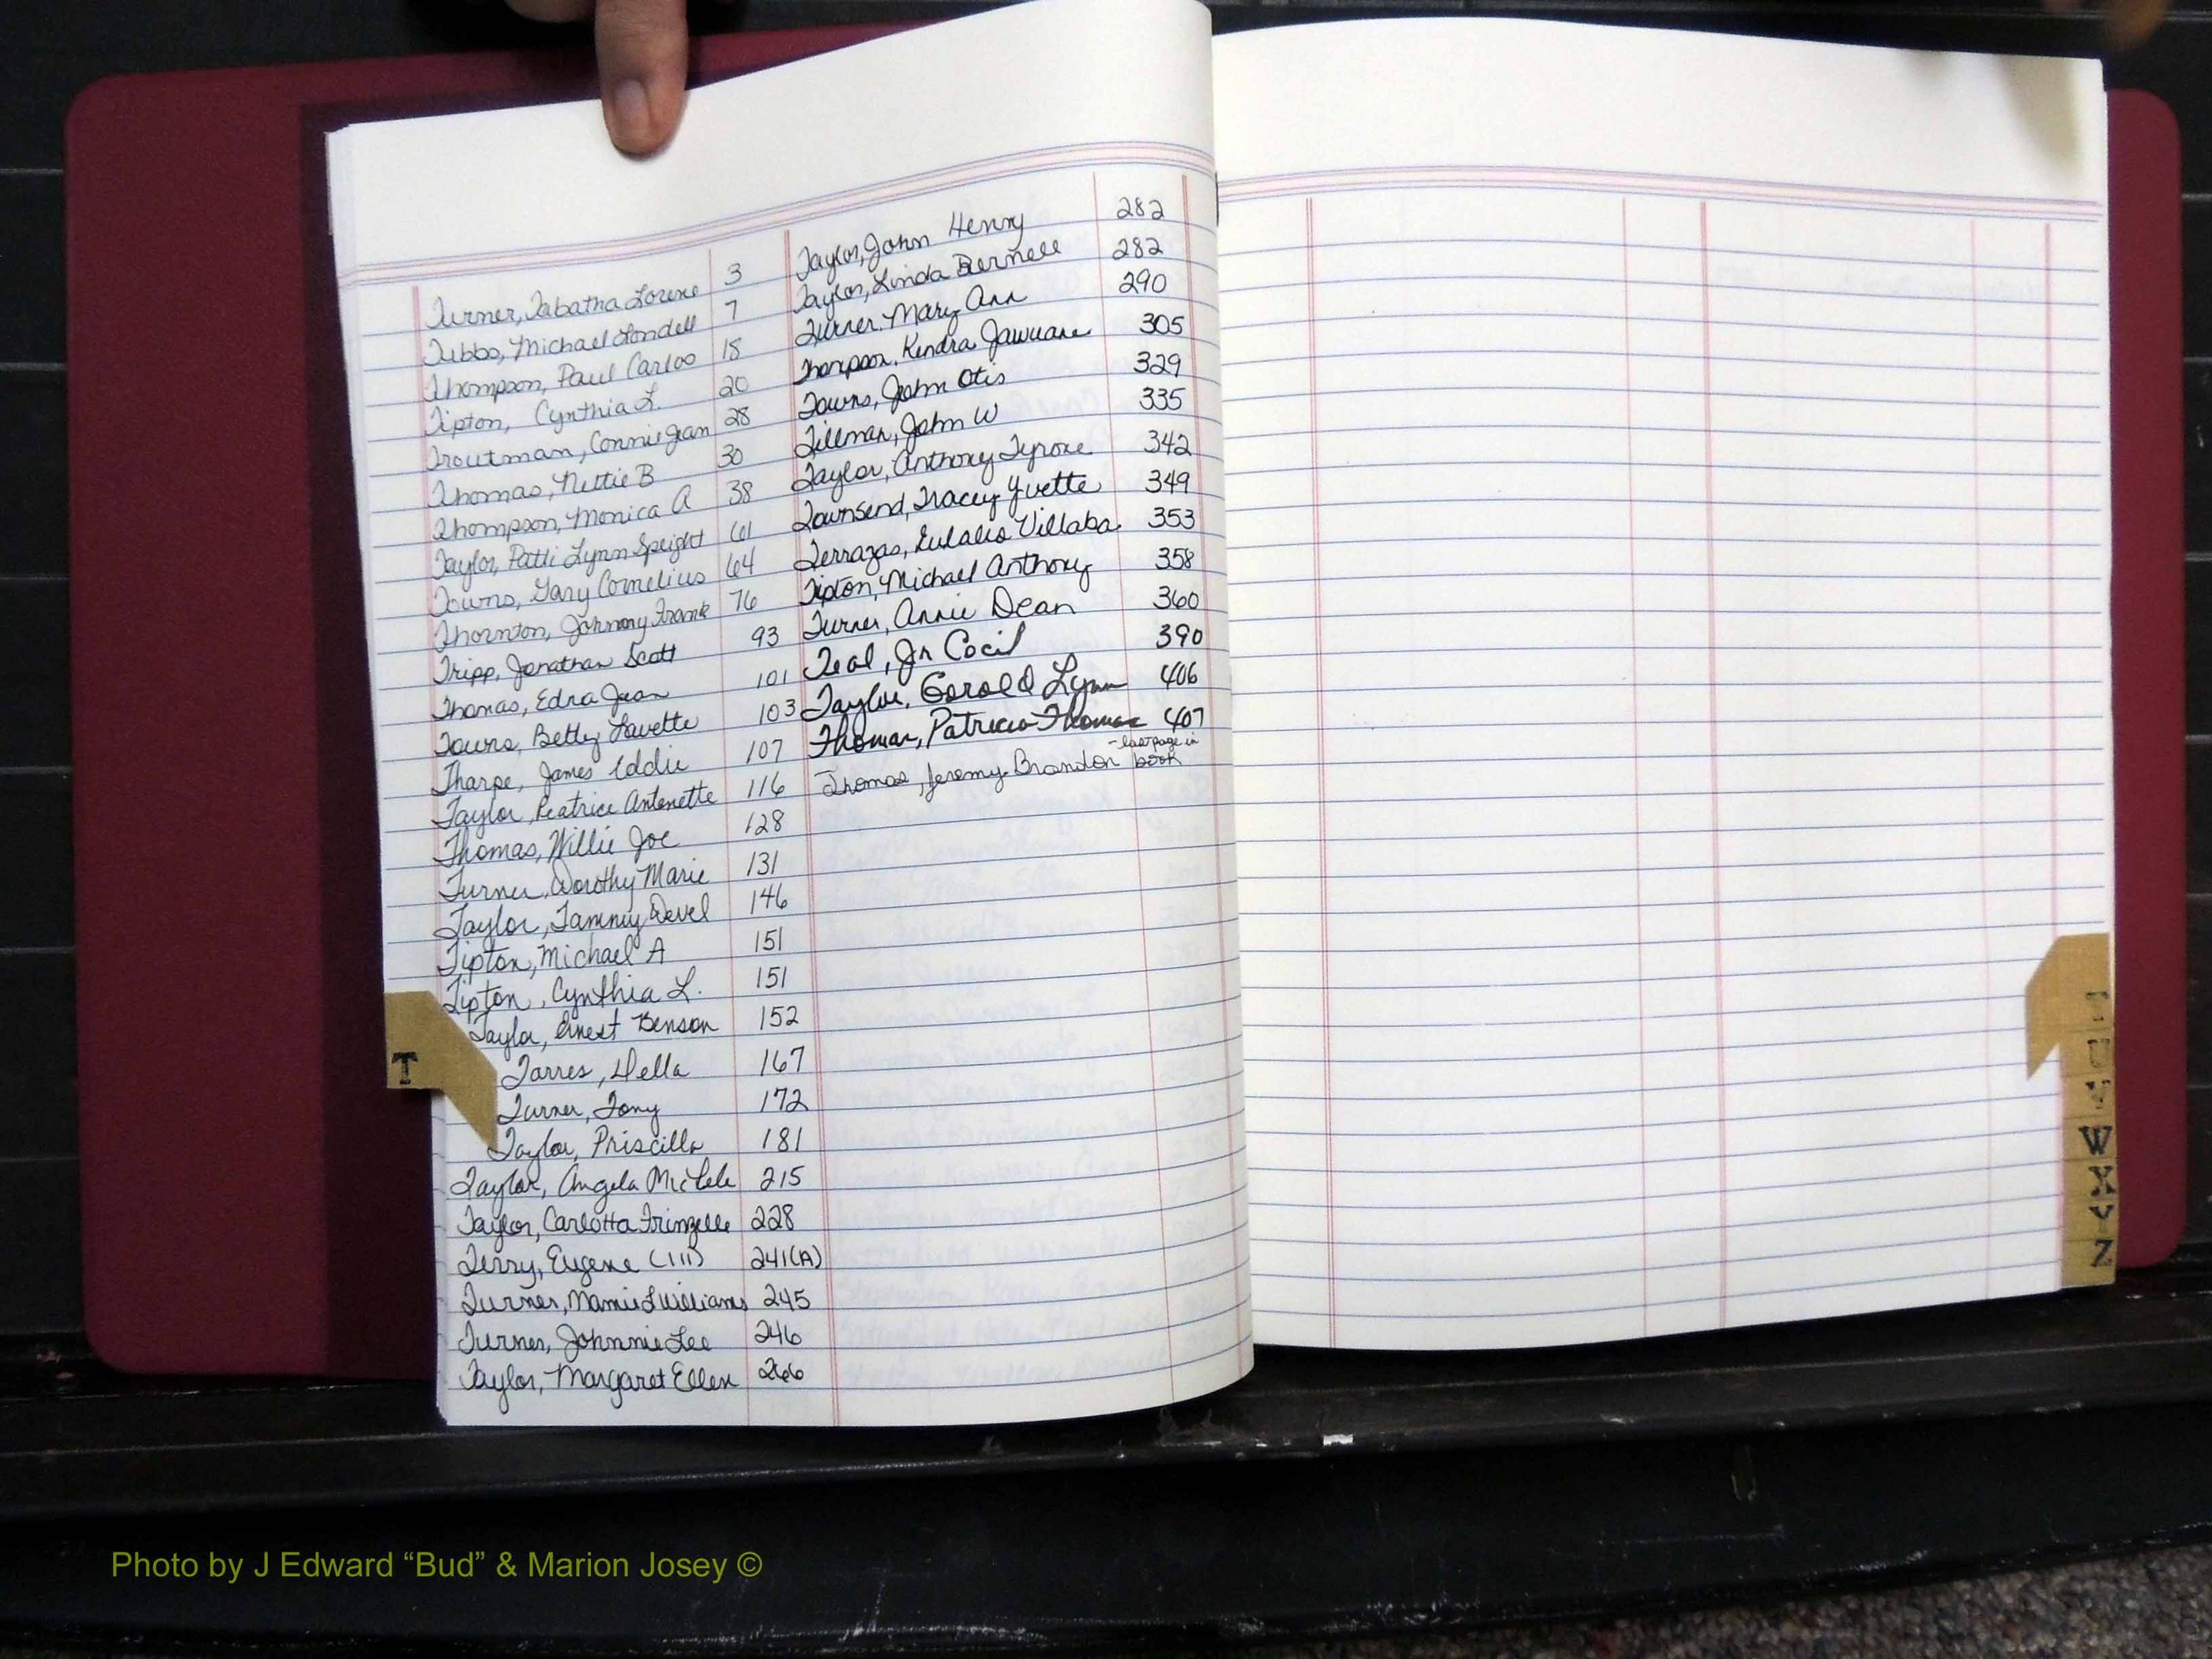 Turner, Tabatha Lorene 3
Tubbs, Michael Londell 7
Thompson, Paul Carlos 18
Tipton, Cynthia L. 20
Troutman, Connie Jean 28
Thomas, Nettie B 30
Thompson, Monica A 38
Taylor, Patti Lynn Speight 61
Towns, Gary Cornelius 64
Thornton, Johnny Frank 76
Tripp, Jonathan Scott 93
Thomas, Edna Jean 101
Towns, Betty Lavette 103
Tharpe, James Eddie 107
Taylor, Beatrice Antonette 116
Thomas, Willie Joe 128
Turner, Dorothy Marie 131
Taylor, Tammy Devel 146
Tipton, Michael A 151
Tipton, Cynthia L. 151
Taylor, Ernest Benson 152
Torres, Della 167
Turner, Tony 172
Taylor, Priscilla 181
Taylor, Angela Michele 215
Taylor, Carlotta 228
Terry, Eugene (III) 241(A)
Turner, Mamie L Williams 245
Turner, Johnnie Lee 246
Taylor, Margaret Ellen 266
Taylor, John Henry 282
Taylor, Linda Bernell 282
Turner, Mary Ann 290
Thompson, Kendra Jawuane 305
Towns, John Otis 329
Tillman, John W 335
Taylor, Anthony Tyrone 342
Townsend, Tracey Yvette 349
Terrazas, Eulalio Villaba 353
Tipton, Michael Anthony 358
Turner, Annie Dean 360
Teal, Jr Cecil 390
Taylor, Gerald Lynn 406
Thomas, Patricia Thomas 407
Thomas, Jeremy Brandon - last page in book
T
T
U
V
W
X
Y
Z
Photo by J Edward “Bud” & Marion Josey ©